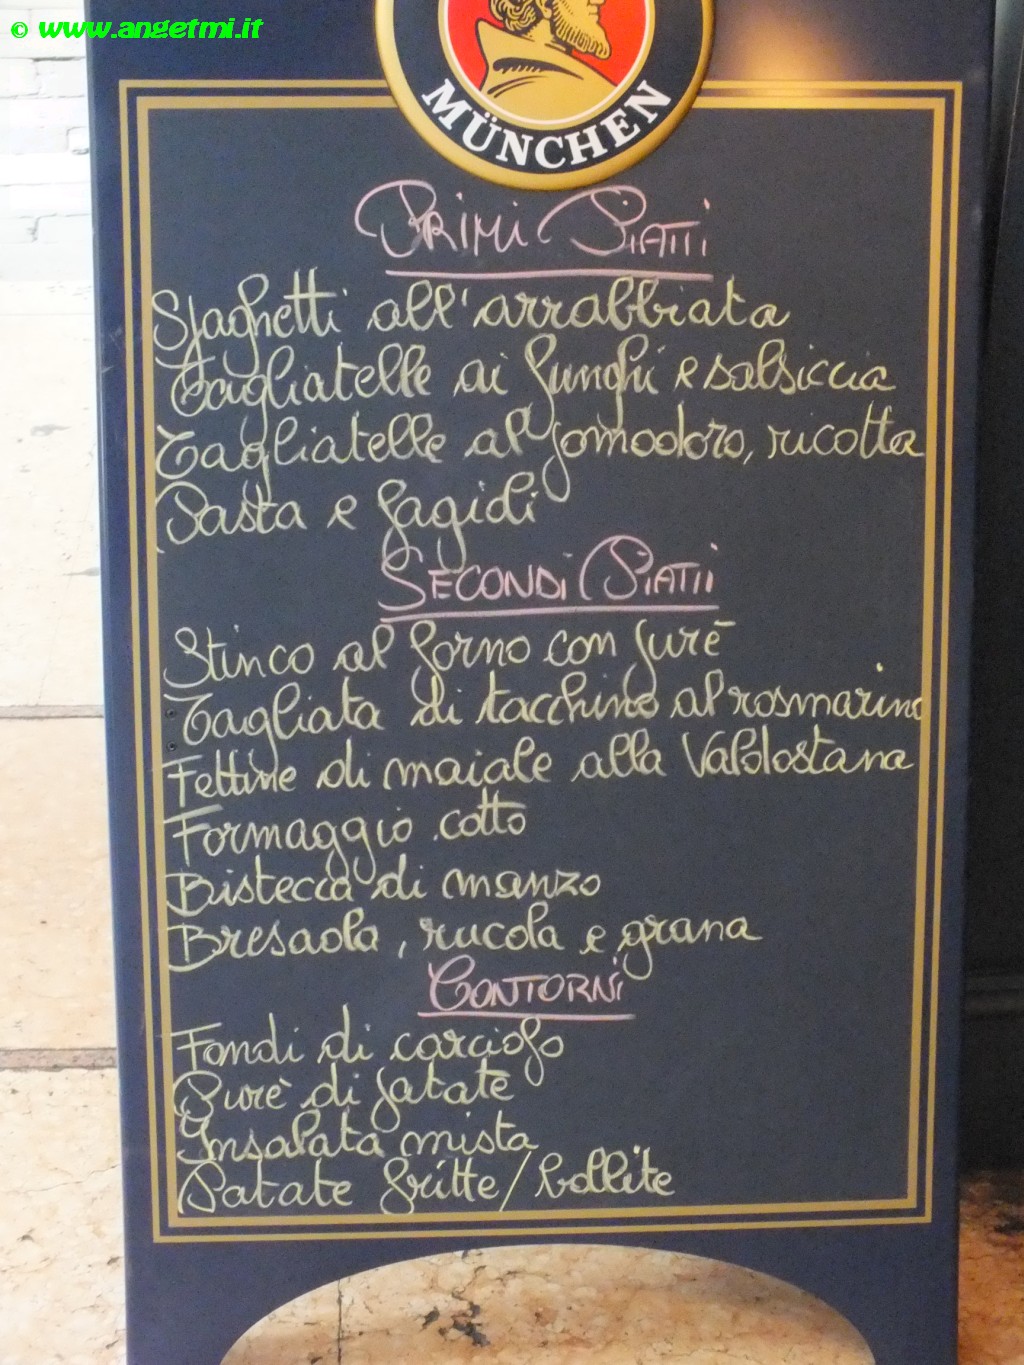 © www.angetmi.it
MÜNCHEN
PRIMI PIATTI
Spaghetti all'arrabbiata
Tagliatelle ai funghi e salsiccia
Tagliatelle al pomodoro, ricotta
Pasta e fagioli
SECONDI PIATTI
Stinco al forno con purè
Tagliata di tacchino al rosmarino
Fettine di maiale alla Valdostana
Formaggio cotto
Bistecca di manzo
Bresaola, rucola e grana
CONTORNI
Fondi di carciofo
Purè di patate
Insalata mista
Patate fritte/bollite